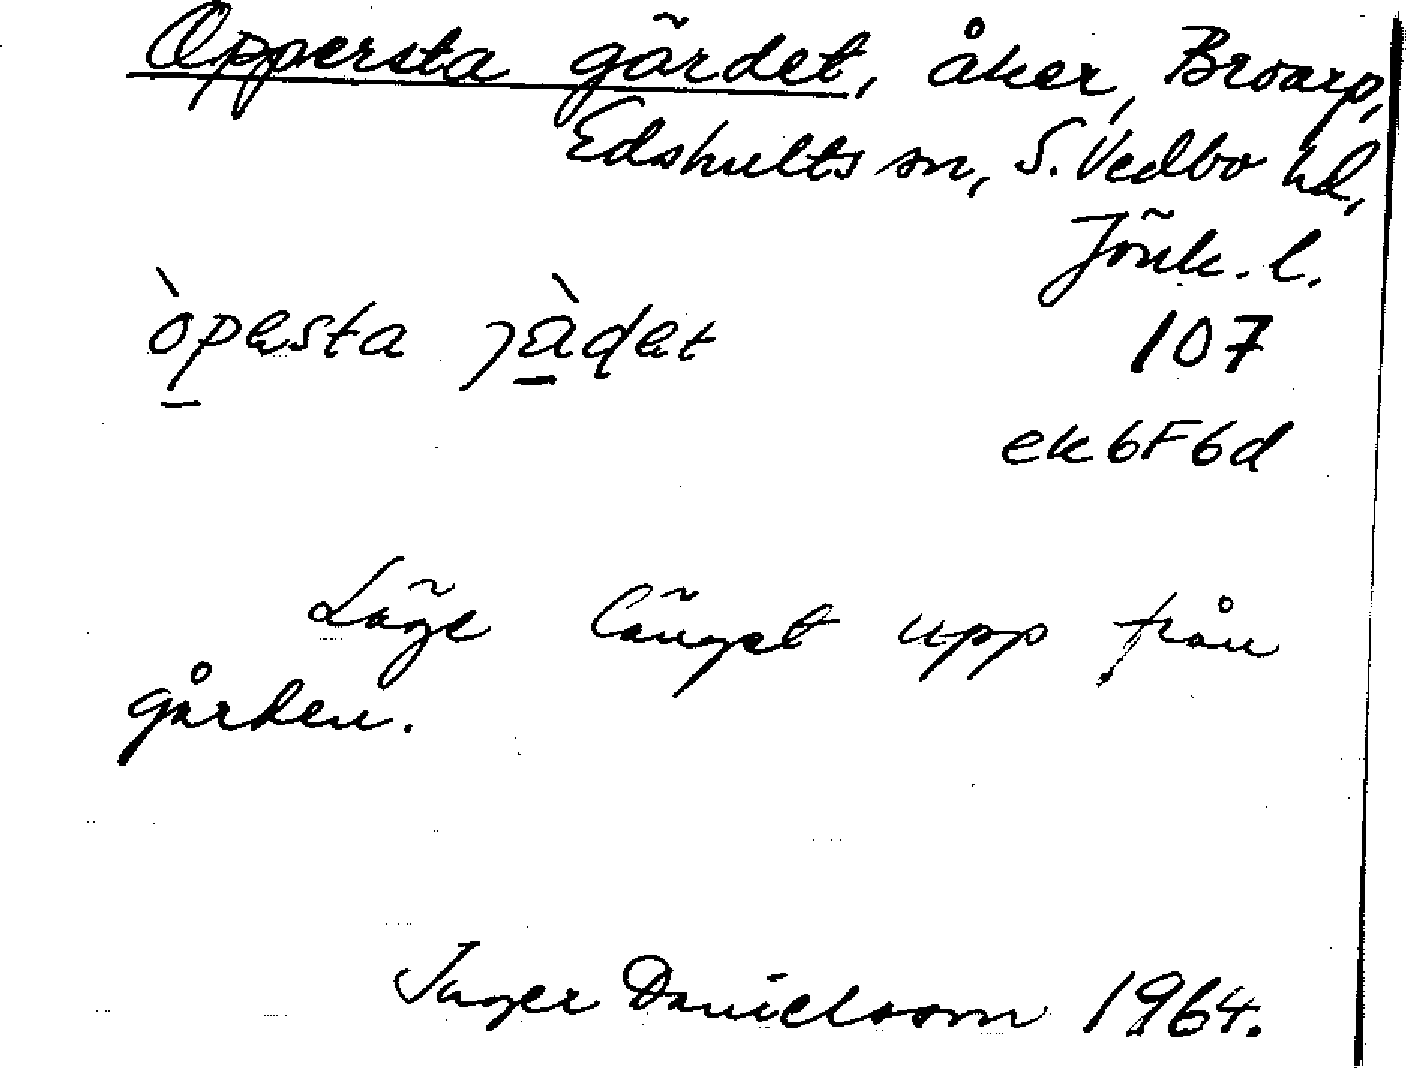 Oppersta gärdet, åker, Broarp,
Edshults sn, S. Vedbo hd,
Jönk. l.
òpæsta jàdæt
107
ek6F6d
Läge längst upp från
gården.
Inger Danielsson 1964.